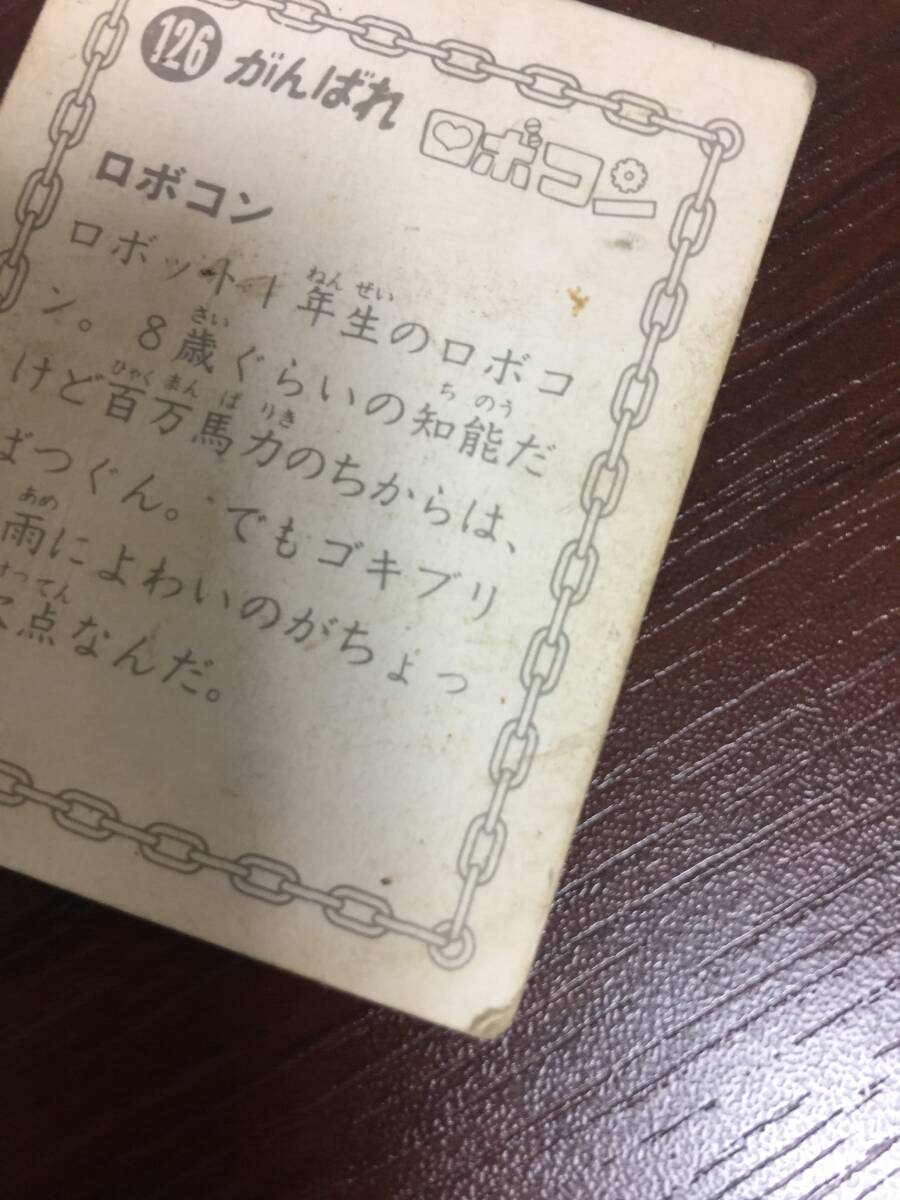 126 がんばれ
ロボコン
ロボコン
ロボット1年生のロボコ
ン。8歳ぐらいの知能だ
けど百万馬力のちからは、
ばつぐん。でもゴキブリ
雨によわいのがちょっ
点なんだ。